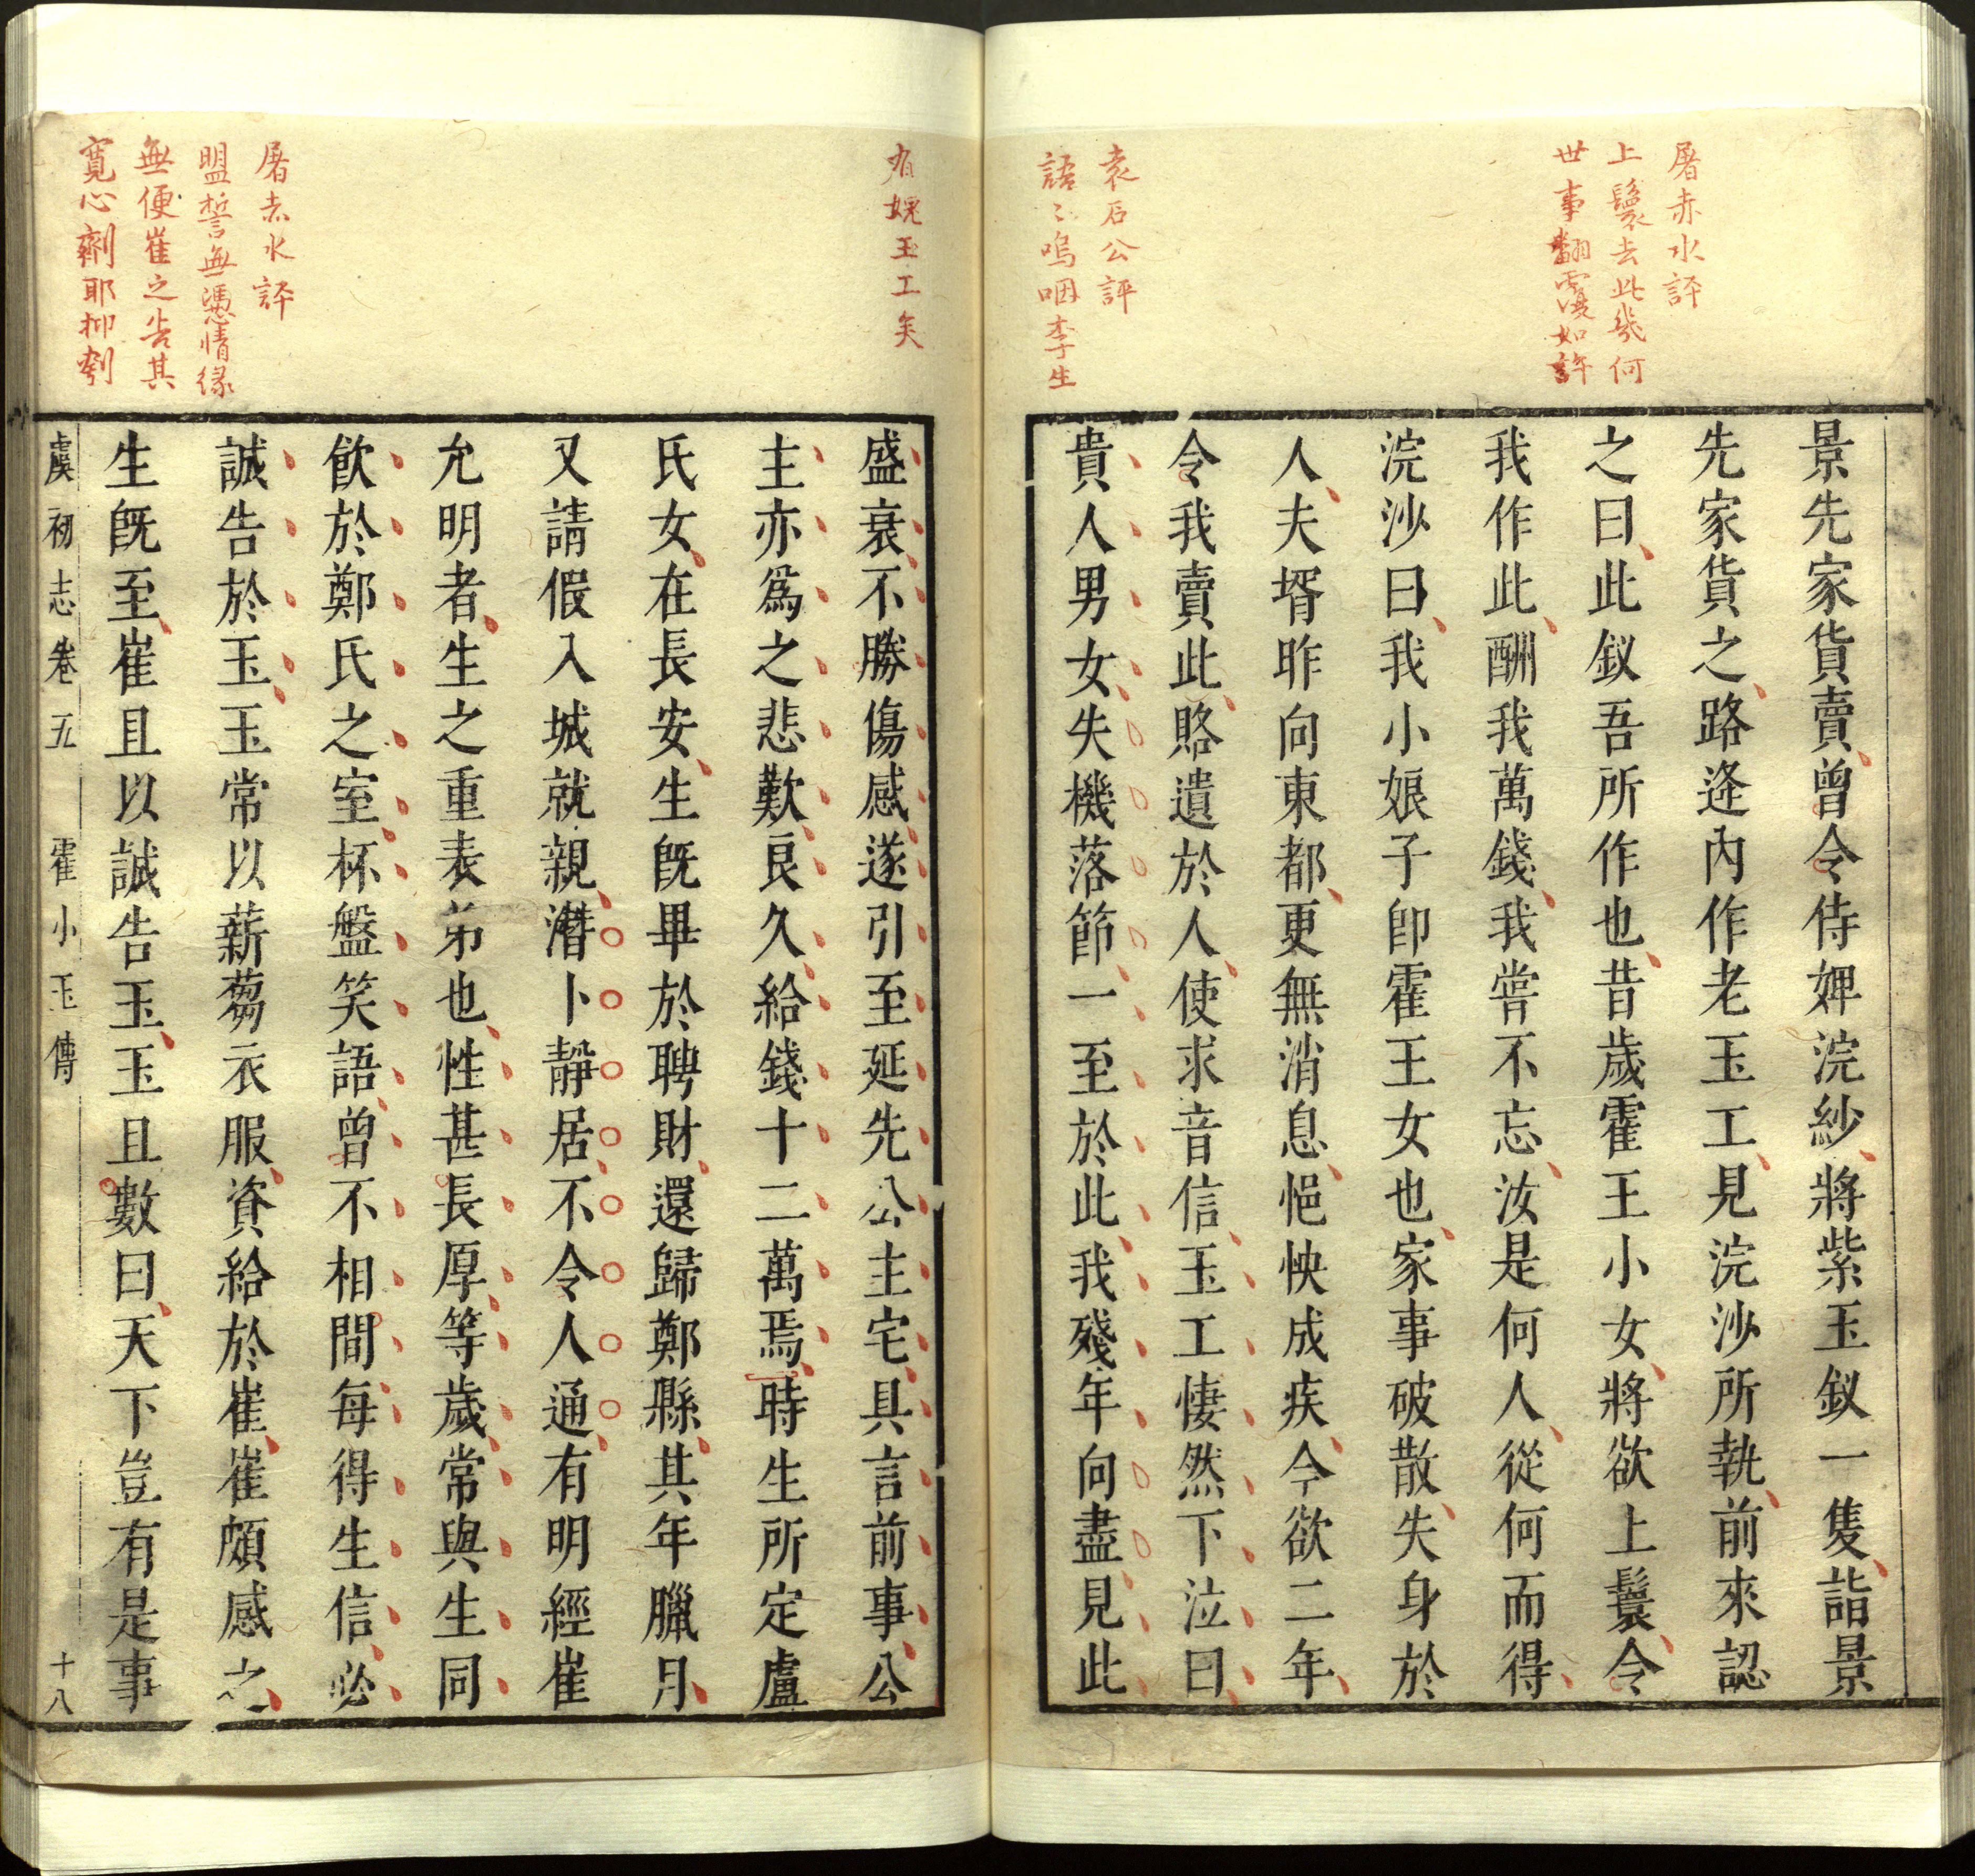 屠赤水評
上鬟去此幾何
世事翻覆如許
袁石公評
語〻嗚咽李生
景先家貨賣曾令侍婢浣紗將紫玉釵一隻詣景
先家貨之路逢內作老玉工見浣沙所執前來認
之曰此釵吾所作也昔歲霍王小女將欲上鬟令
我作此酬我萬錢我嘗不忘汝是何人從何而得
浣沙曰我小娘子卽霍王女也家事破散失身於
人夫壻昨向東都更無消息悒怏成疾今欲二年
令我賣此賂遺於人使求音信玉工悽然下泣曰
貴人男女失機落節一至於此我殘年向盡見此
有媿玉工矣
屠赤水評
盟誓無憑情緣
無便崔之告其
寬心劑耶抑
盛衰不勝傷感遂引至延先公主宅具言前事公
主亦爲之悲歎良久給錢十二萬焉時生所定盧
氏女在長安生旣畢於聘財還歸鄭縣其年臘月
又請假入城就親潛卜靜居不令人通有明經崔
允明者生之重表弟也性甚長厚等歲常與生同
飮於鄭氏之室杯盤笑語曾不相間每得生信必
誠告於玉玉常以薪蒭衣服資給於崔崔頗感之
生旣至崔且以誠告玉玉且數曰天下豈有是事
虞初志卷五 霍小玉傳 十八